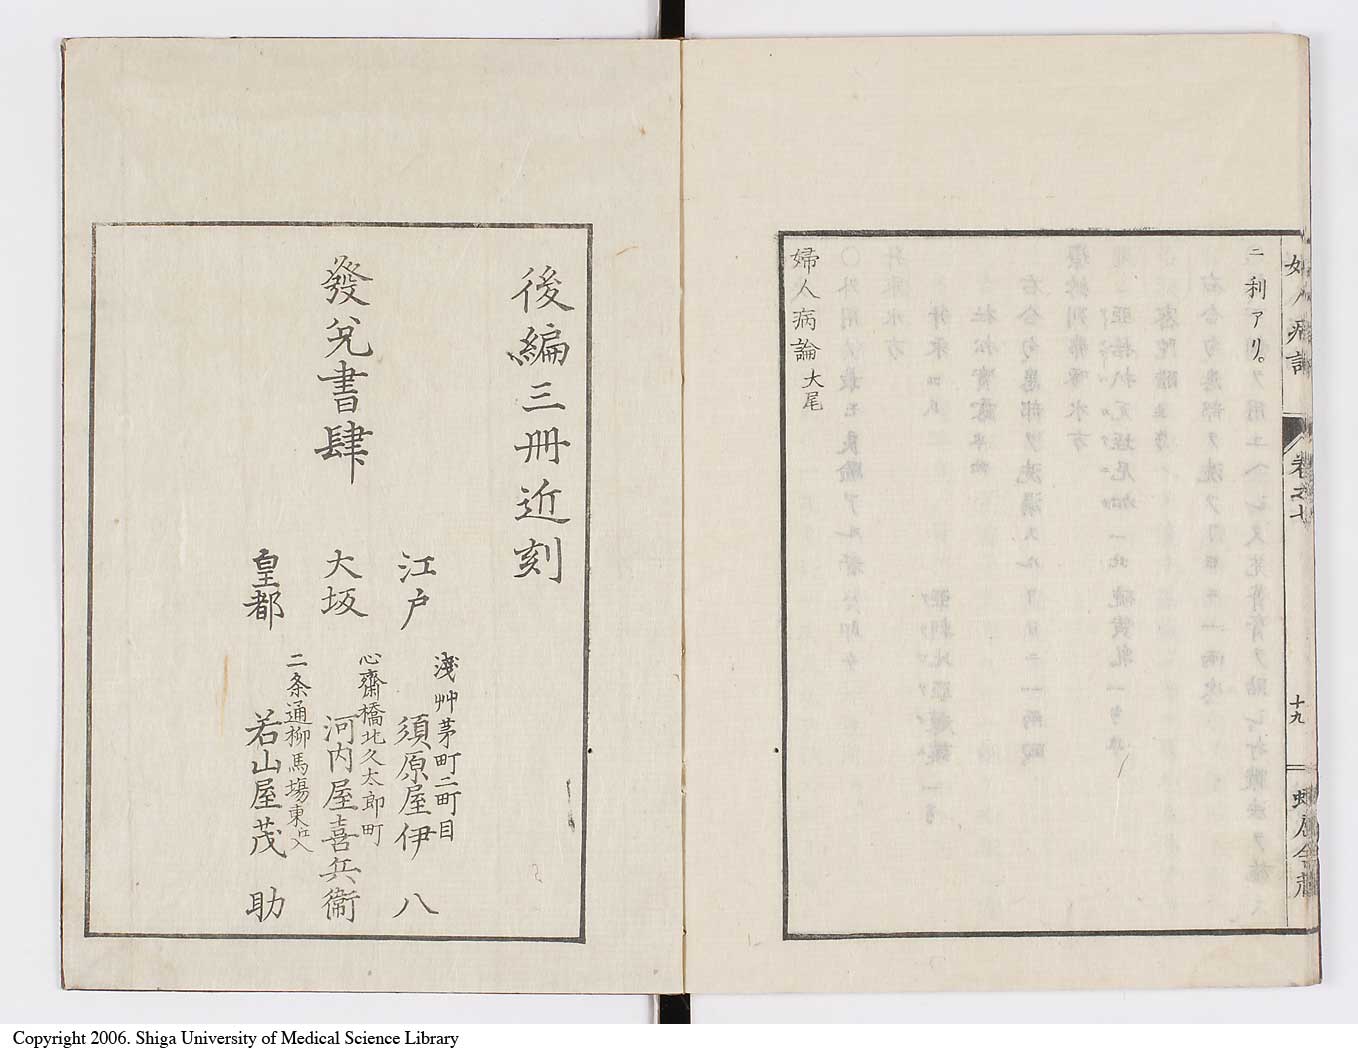 ニ利アリ。
婦人病論大尾
婦人病論
卷之七
十九
後編三冊近刻
發兌書肆
江戸
淺艸茅町二町目
須原屋伊八
大坂
心齋橋北久太郎町
河内屋喜兵衞
皇都
二条通柳馬場東江入
若山屋茂助
Copyright 2006. Shiga University of Medical Science Library